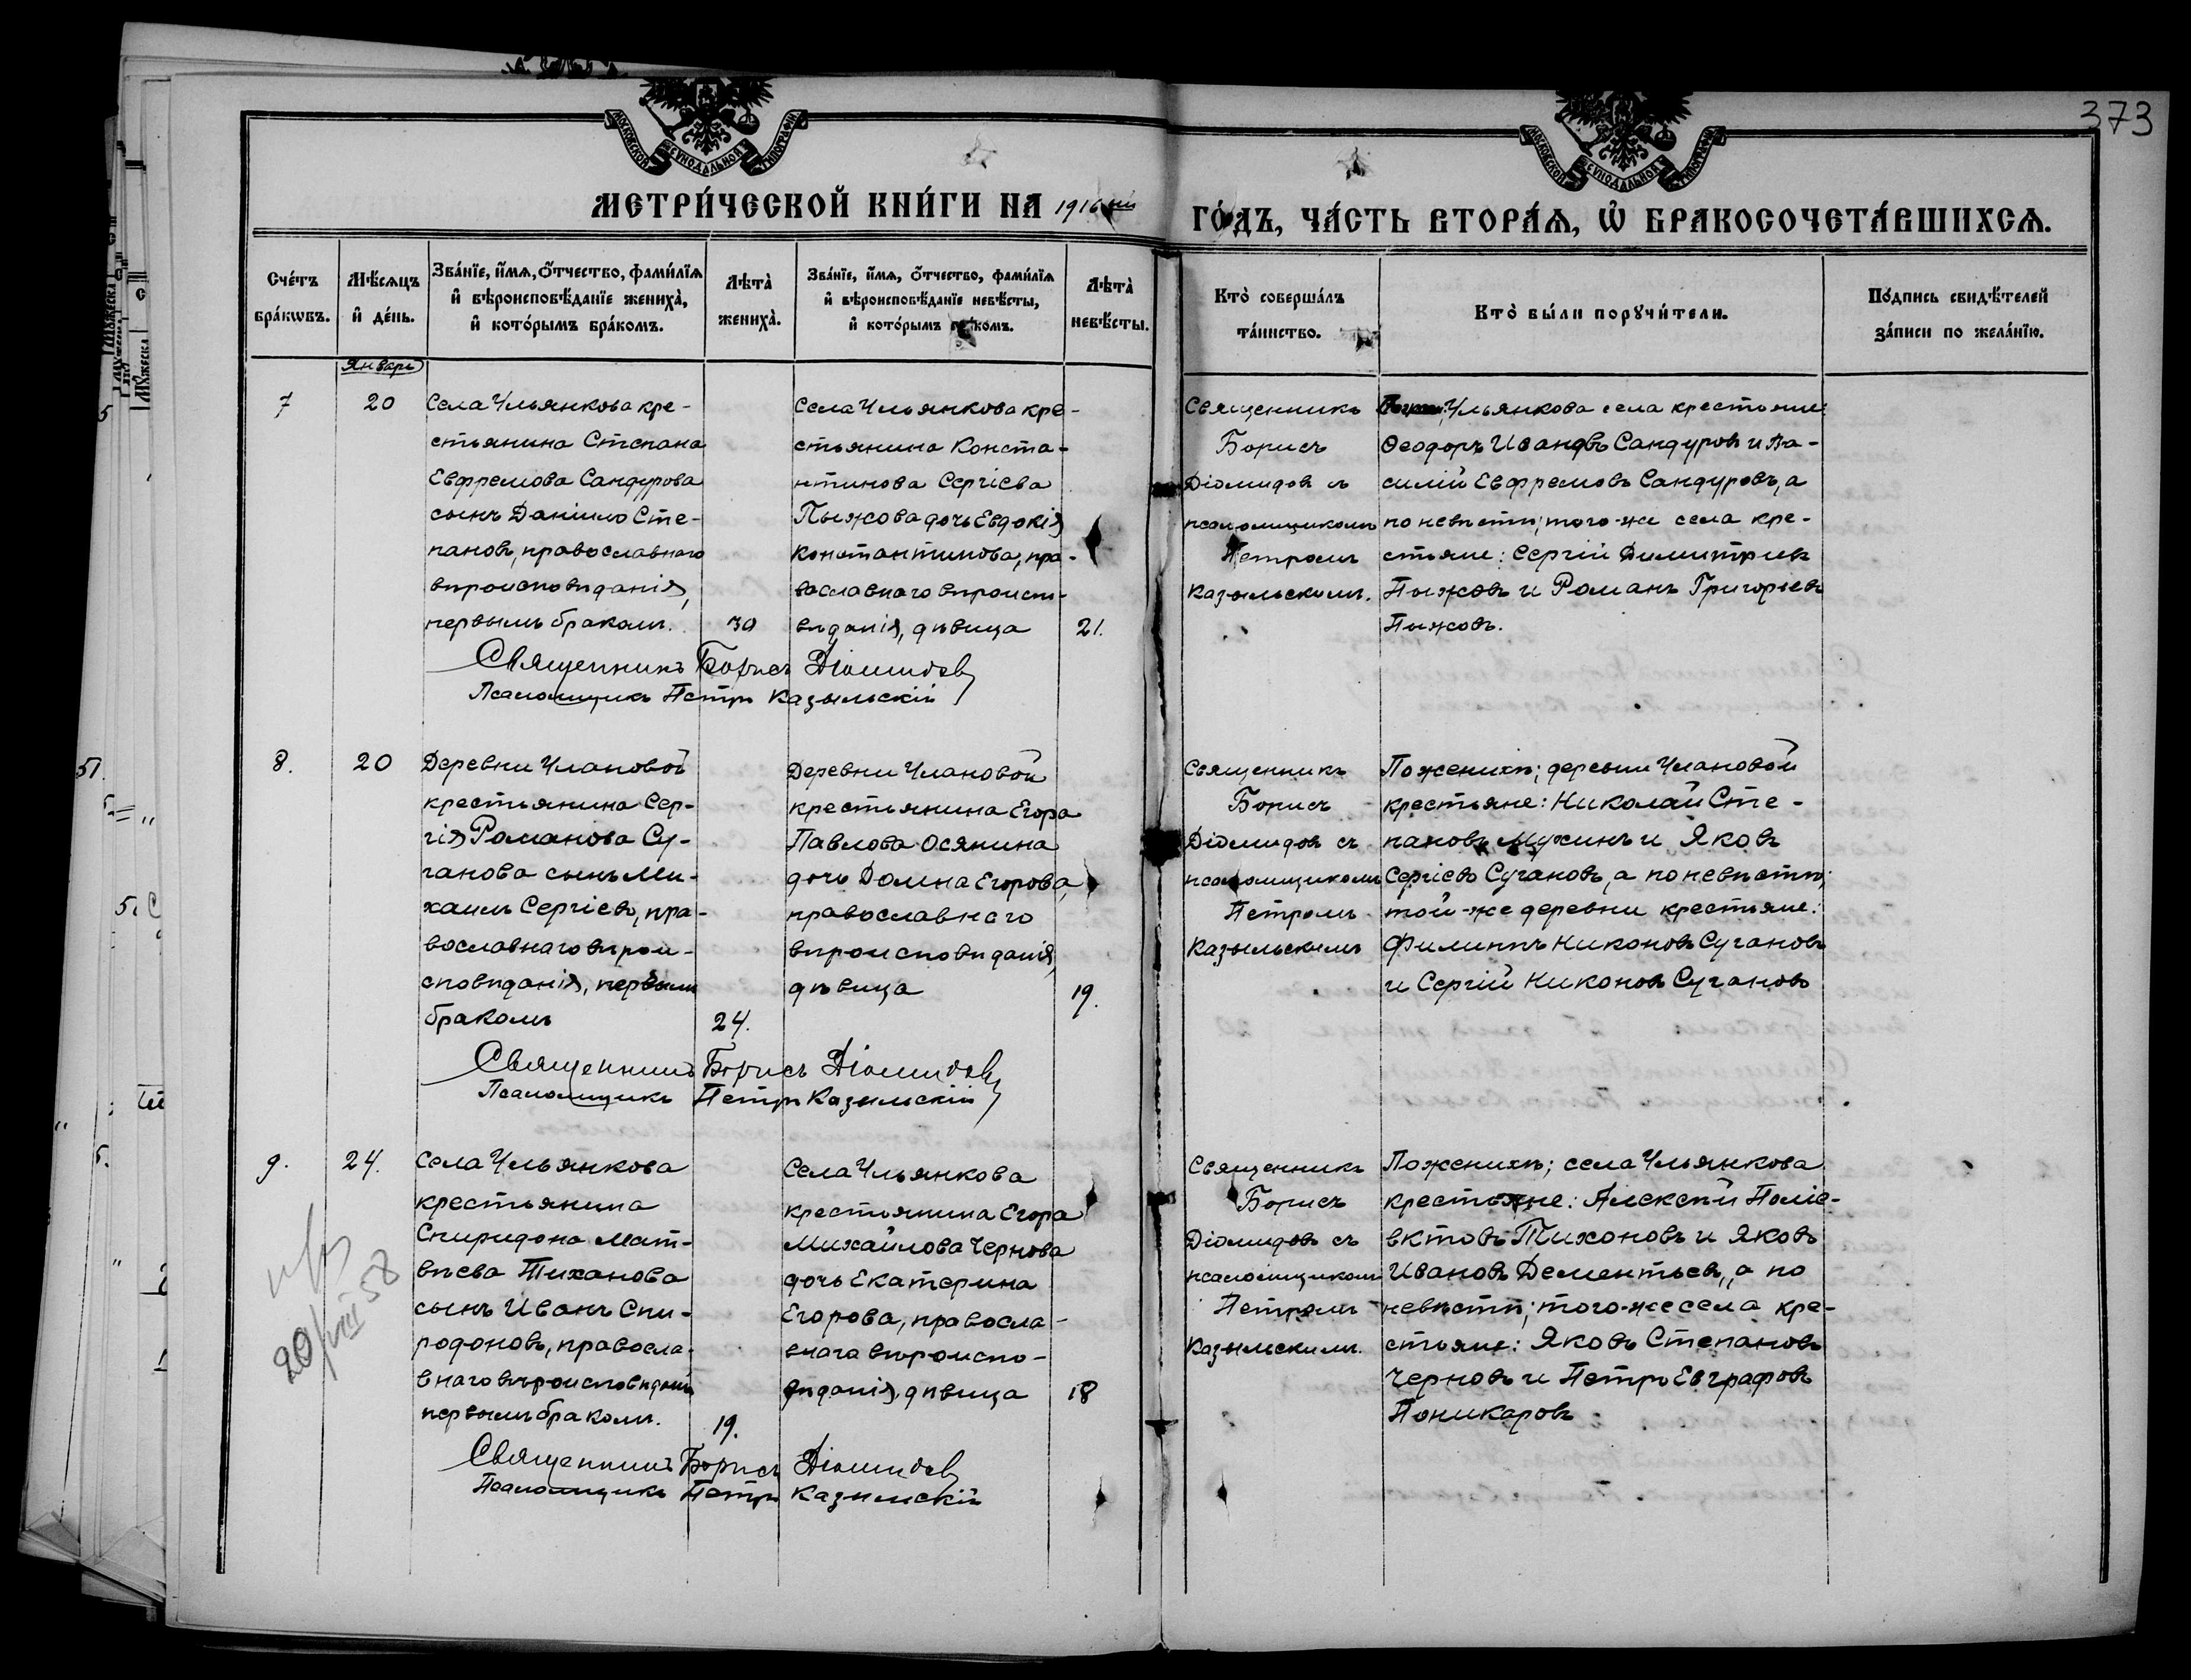 373
МОСКОВСКОЙ СѴНОДАЛЬНОЙ ТИПОГРАФІИ
МОСКОВСКОЙ СѴНОДАЛЬНОЙ ТИПОГРАФІИ
МЕТРИ́ЧЕСКОЙ КНИ́ГИ НА 1916
ГО́ДЪ, ЧА́СТЬ ВТОРА́Ѧ, Ѽ БРАКОСОЧЕТА́ВШИХСѦ.
Сче́тъ
бра́кѡвъ.
Мѣ́сѧцъ
и҆ де́нь.
Зва́нїе, и҆́мѧ, ѻ҆́тчество, фами́лїѧ
и҆ вѣроисповѣ́данїе жениха̀,
и҆ кото́рымъ бра́комъ.
Лѣта̀
жениха̀.
Зва́нїе, и҆́мѧ, ѻ҆́тчество, фами́лїѧ
и҆ вѣроисповѣ́данїе невѣ́сты,
и҆ кото́рымъ бра́комъ.
Лѣта̀
невѣ́сты.
Кто̀ соверша́лъ
та́инство.
Кто̀ бы́ли порꙋчи́тели.
По́дпись свидѣ́телей
за́писи по жела́нїю.
Январь
7
20
Села Ульянкова кре-
стьянина Степана
Евфремова Сандурова
сынъ Даніилъ Сте-
пановъ, православнаго
вѣроисповѣданія,
первымъ бракомъ.
30
Села Ульянкова кре-
стьянина Конста-
нтинова Сергіева
Пыжова дочь Евдокія
Константинова, пра-
вославнаго вѣроиспо-
вѣданія, дѣвица
21.
Священникъ
Борисъ
Діомидовъ съ
псаломщикомъ
Петромъ
Казыльскимъ.
Ульянкова села крестьяне:
Ѳеодоръ Ивановъ Сандуровъ и Ва-
силій Евфремовъ Сандуровъ, а
по невѣстѣ; того-же села кре-
стьяне: Сергій Димитріевъ
Пыжовъ и Романъ Григорьевъ
Пыжовъ.
Священникъ Борисъ Діомидовъ
Псаломщикъ Петръ Казыльскій
8.
20
Деревни Улановой
крестьянина Сер-
гія Романова Су-
ганова сынъ Ми-
хаилъ Сергіевъ, пра-
вославнаго вѣрои-
сповѣданія, первымъ
бракомъ
24.
Деревни Улановой
крестьянина Егора
Павлова Осянина
дочь Домна Егорова,
православнаго
вѣроисповѣданія,
дѣвица
19.
Священникъ
Борисъ
Діомидовъ съ
псаломщикомъ
Петромъ
Казыльскимъ
По женихѣ; деревни Улановой
крестьяне: Николай Сте-
пановъ Мухинъ и Яковъ
Сергіевъ Сугановъ, а по невѣстѣ;
той-же деревни крестьяне:
Филиппъ Никоновъ Сугановъ
и Сергій Никоновъ Сугановъ
Священникъ Борисъ Діомидовъ
Псаломщикъ Петръ Казыльскій
9.
24.
Села Ульянкова
крестьянина
Спиридона Мат-
вѣева Тиханова
сынъ Иванъ Спи-
родоновъ, правосла-
внаго вѣроисповѣданія
первымъ бракомъ.
19.
Села Ульянкова
крестьянина Егора
Михайлова Чернова
дочь Екатерина
Егорова, правосла-
внаго вѣроиспо-
вѣданія, дѣвица
18
Священникъ
Борисъ
Діомидовъ съ
псаломщикомъ
Петромъ
Казыльскимъ.
По женихѣ; села Ульянкова
крестьяне: Алексѣй Поліе-
вктовъ Тихоновъ и Яковъ
Ивановъ Дементьевъ, а по
невѣстѣ; того-же села кре-
стьяне: Яковъ Степановъ
Черновъ и Петръ Евграфовъ
Поникаровъ
Священникъ Борисъ Діомидовъ
Псаломщикъ Петръ Казыльскій
20/VIII 58